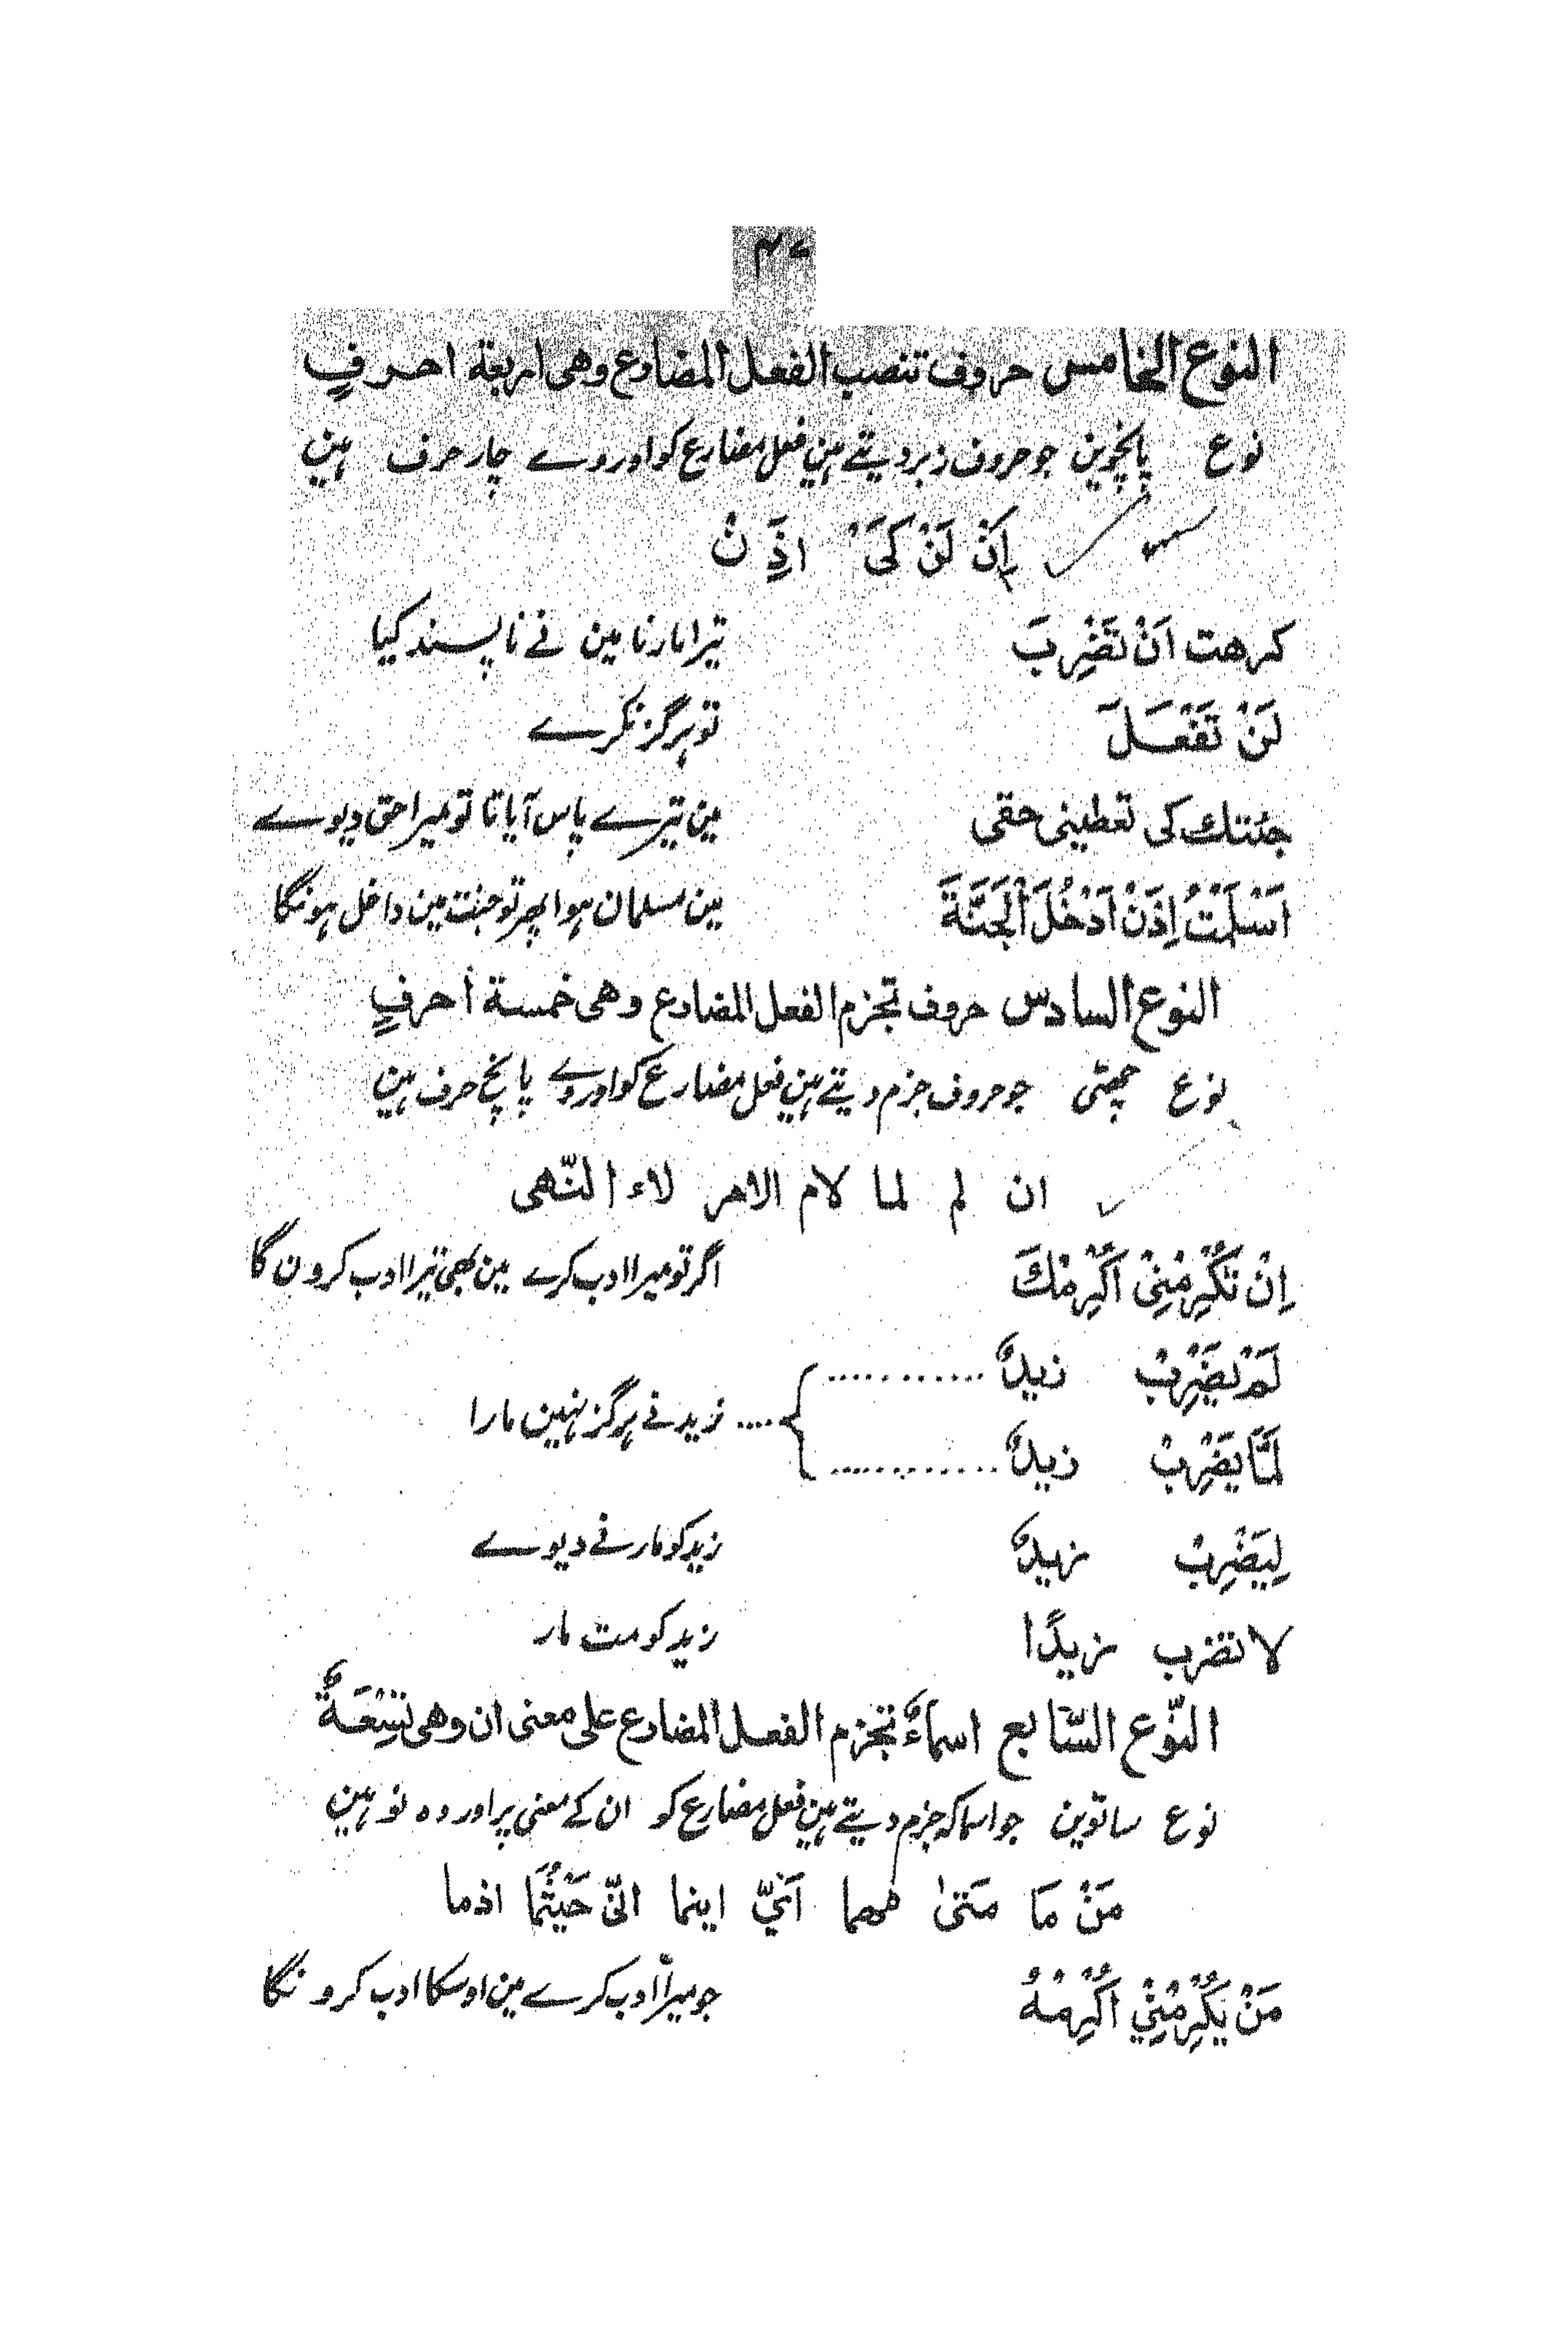 النوع الخامس حروف تنصب الفعل المضارع وهى اربعة احرفٍ
نوع پانچوین جو حروف زبر دیتے ہین فعل مضارع کو اور وے چار حرف ہین
اِنْ لَنْ كَىْ اذَنْ
كرهت اَنْ تَضْرِبَ تیرا مارنا مین نے ناپسند کیا
لَنْ تَفْعَـلَ تو ہرگز نکرے
جئتك كى تعطينى حقى مین تیرے پاس آیا تا تو میرا حق دیوے
اَسْلَمْتُ اِذَنْ اَدْخُلَ الْجَنَّةَ مین مسلمان ہوا پھر تو جنت مین داخل ہونگا
النوع السادس حروف تجزم الفعل المضارع وهى خمسة احرفٍ
نوع چھٹی جو حروف جزم دیتے ہین فعل مضارع کو اور وے پانچ حرف ہین
ان لم لما لام الامر لاء النّهى
اِنْ تُكْرِمْنِىْ اُكْرِمْكَ اگر تو میرا ادب کرے مین بھی تیرا ادب کرون گا
لَمْ يَضْرِبْ زيدٌ ............
زید نے ہرگز نہین مارا
لَمَّا يَضْرِبْ زيدٌ ............
لِيَضْرِبْ زيدٌ زید کو مارنے دیوے
لا تضرب زيدًا زید کو مت مار
النّوع السّابع اسماءٌ تجزم الفعل المضارع على معنى ان وهى تِسْعَـةٌ
نوع ساتوین جو اسما کہ جزم دیتے ہین فعل مضارع کو ان کے معنی پر اور وہ نو ہین
مَنْ مَا مَتىٰ مهما اَىّ اينما انّى حَيْثُمَا اذما
مَنْ يُكْرِمْنِيْ اُكْرِمْـهُ جو میرا ادب کرے مین اوسکا ادب کرونگا